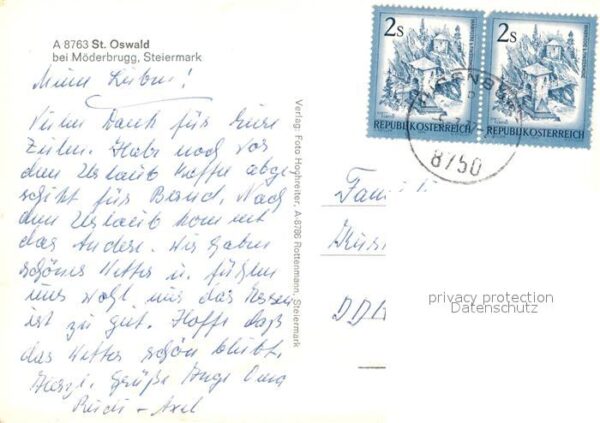 A 8763 St. Oswald
bei Möderbrugg, Steiermark
Meine Lieben!
Vielen Dank für Eure
Zeilen. Habe noch vor
dem Urlaub Kaffee abge-
schikt für Bernd. Nach
dem Urlaub kommt
das Andere. Wir haben
schönes Wetter u. fühlen
uns wohl, nur das Essen
ist zu gut. Hoffe daß
das Wetter schön bleibt.
Herzl. Grüße Inge Oma
Rudi - Axel
Verlag: Foto Hochreiter, A-8786 Rottenmann, Steiermark
2s
2s
REPUBLIK ÖSTERREICH
REPUBLIK ÖSTERREICH
8750
Fam
DDR
privacy protection
Datenschutz